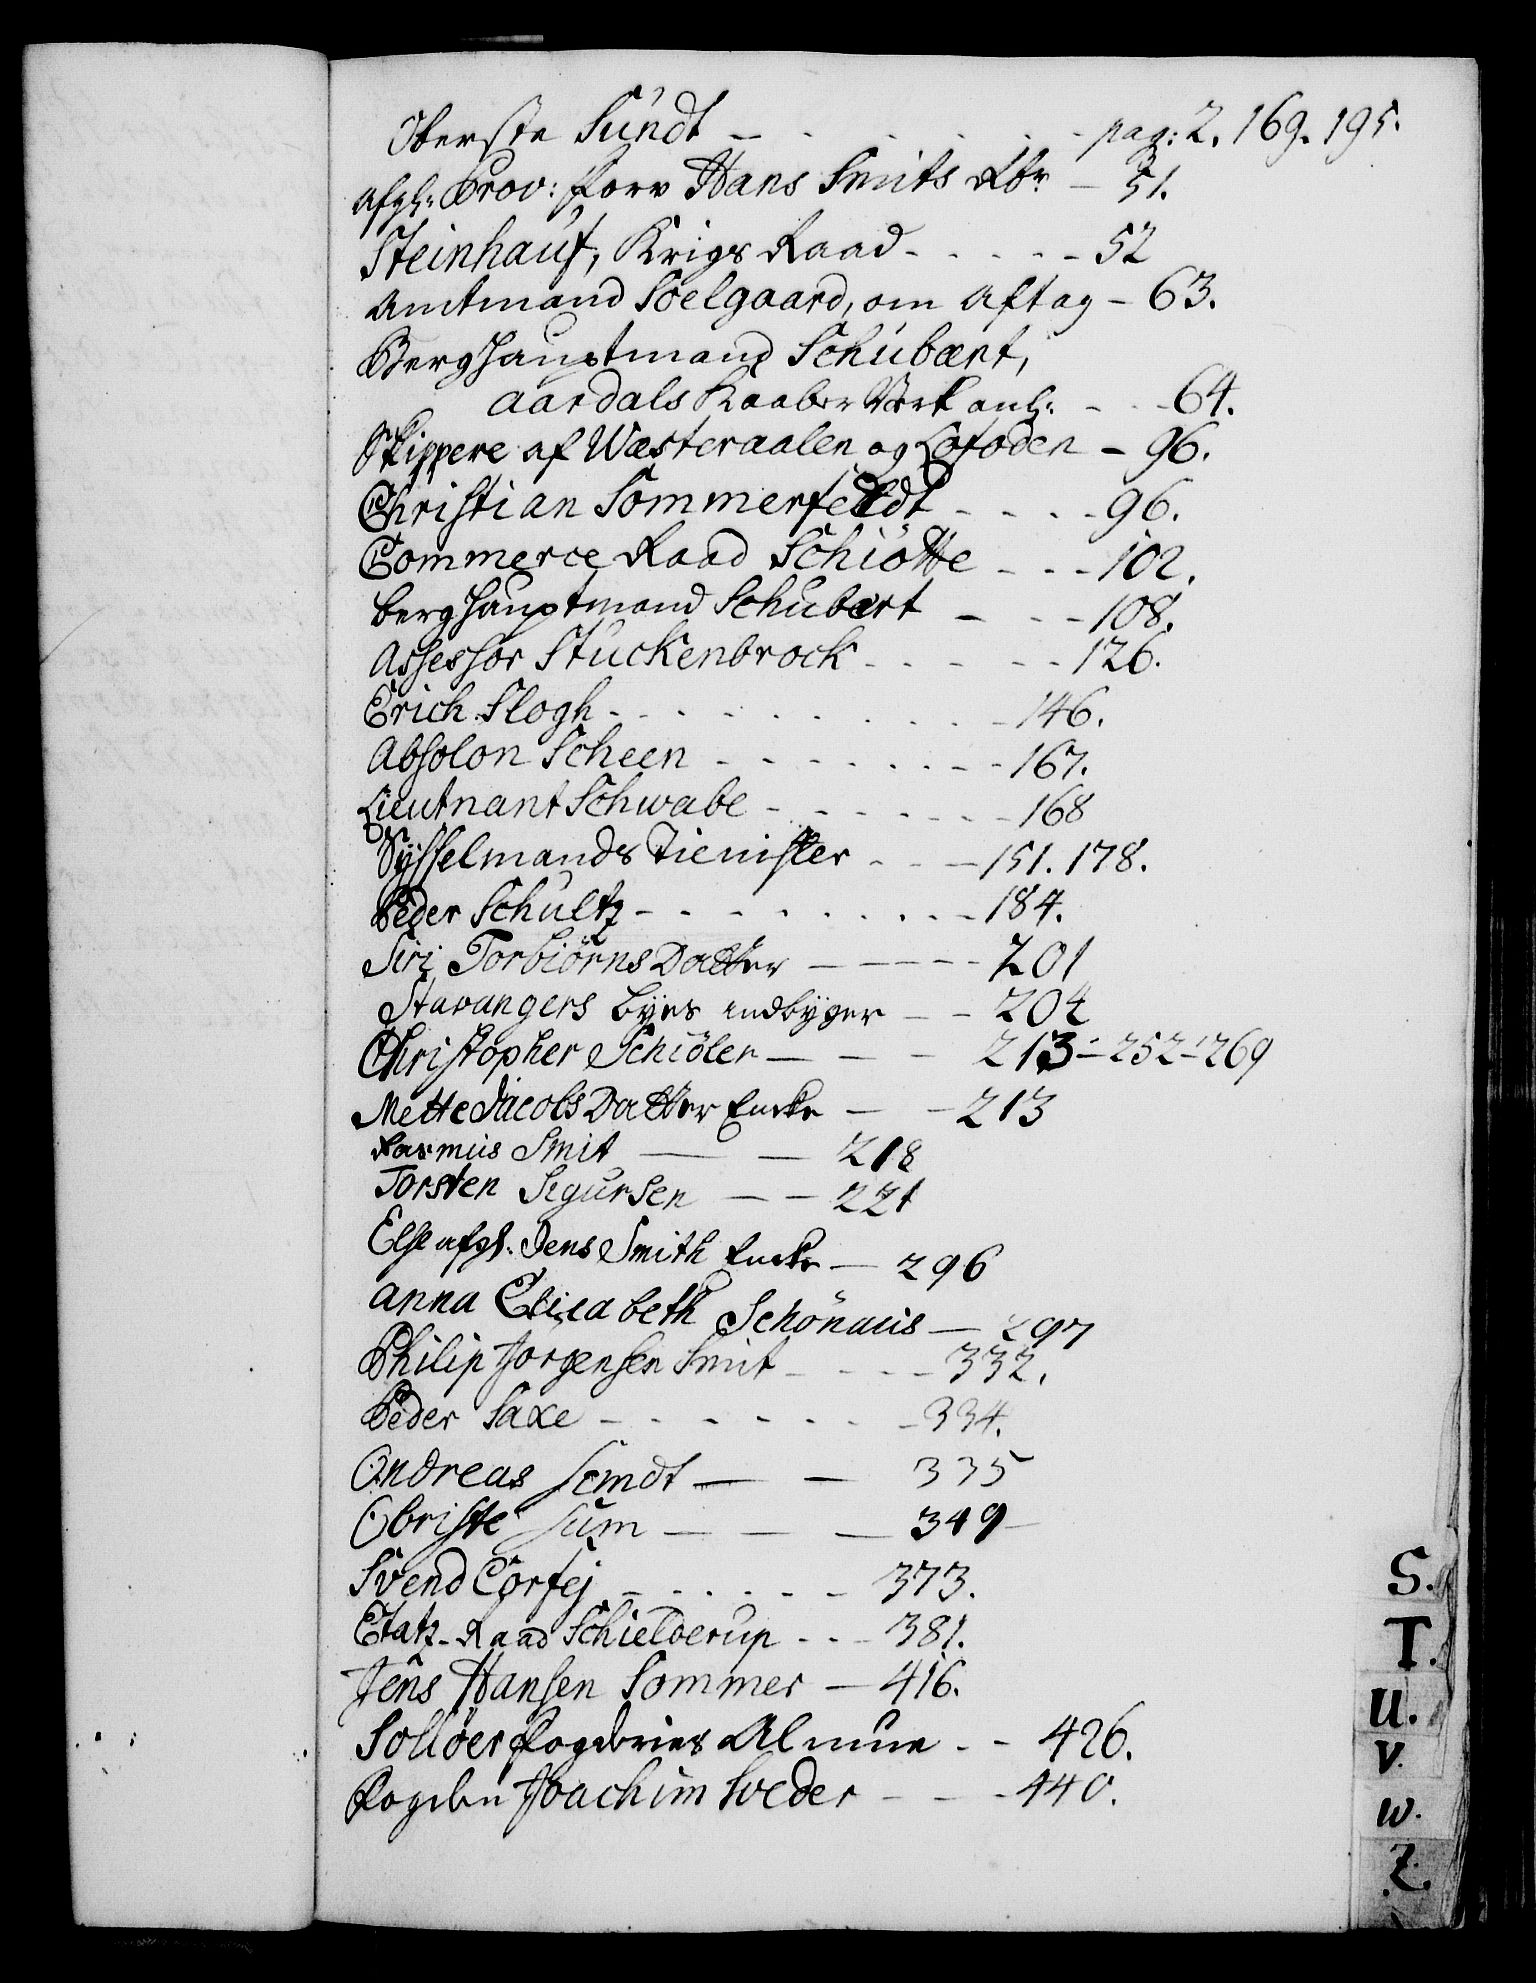 Oberste Sundt - - - - - - pag: 2. 169. 195.
Afgl: Prov: Forv Hans Smits Arv: - 51.
Steinhauf, Krigs Raad - - - - - 52
Amtmand Soelgaard, om Aftag - 63.
Berghauptmand Schubært,
Aardals Kaaber Werk anl: - - - 64.
Skippere af Wæsteraalen og Lofoden - 96.
Christian Sommerfeldt - - - - 96.
Commerce Raad Schiøtte - - - 102.
Berghauptmand Schubært - - - 108.
Assessor Stuckenbrock - - - - - 126.
Erich Slogh - - - - - - - - - 146.
Absolon Scheen - - - - - - - - 167.
Lieutnant Schwabe - - - - - - - 168
Sysselmands Tienister - - - 151. 178.
Peder Schultz - - - - - - - - - 184.
Siri Torbiörns Datter - - - - - 201
Stavangers Byes Indbyger - - 204
Christopher Schiöler - - - 213 - 252 - 269
Mette Jacobs Datter Encke - - 213
Rasmus Smit - - 218
Torsten Sigursen - - 221
Else afgl. Jens Smith Encke - 296
Anna Elisabeth Schönauis - 297
Philip Jørgensen Smit - - - - 332.
Peder Saxe - - - - - - - 334.
Andreas Semdt - - 335
Obriste Sum - - - 349 -
Svend Corfej - - - - - - 373.
Etatz-Raad Schielderup - - - 381.
Jens Hansen Sommer - 416.
Solløer Fogderies Almue - - 426.
Fogden Joachim Sveder - - - 440.
S.
T.
U.
V.
W.
Z.